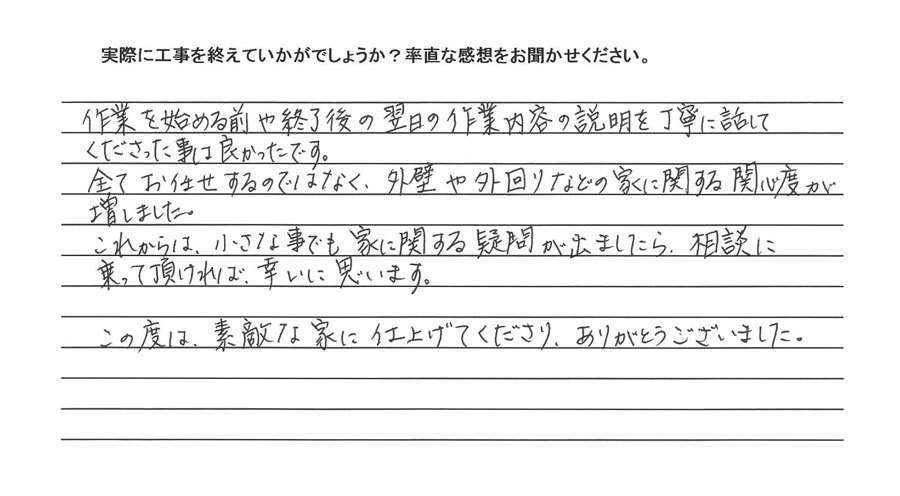 実際に工事を終えていかがでしょうか？率直な感想をお聞かせください。
作業を始める前や終了後の翌日の作業内容の説明を丁寧に話して
くださった事は良かったです。
全てお任せするのではなく、外壁や外回りなどの家に関する関心度が
増しました。
これからは、小さな事でも家に関する疑問が出ましたら、相談に
乗って頂ければ、幸いに思います。
この度は、素敵な家に仕上げてくださり、ありがとうございました。